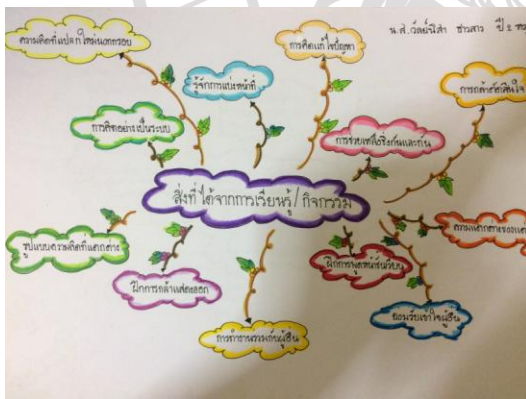 น.ส.วัลย์นิสา ชาวสาว ปี ๒
ความคิดที่แปลกใหม่นอกกรอบ
การคิดแก้ไขปัญหา
รู้จักการแบ่งหน้าที่
การกล้าตัดสินใจ
การคิดอย่างเป็นระบบ
การช่วยเหลือซึ่งกันและกัน
สิ่งที่ได้จากการเรียนรู้/กิจกรรม
รูปแบบความคิดที่แตกต่าง
ความแตกต่างของแต่
ฝึกการกล้าแสดงออก
ฝึกการพูดหน้าชั้นเรียน
ยอมรับเข้าใจผู้อื่น
การทำงานร่วมกับผู้อื่น